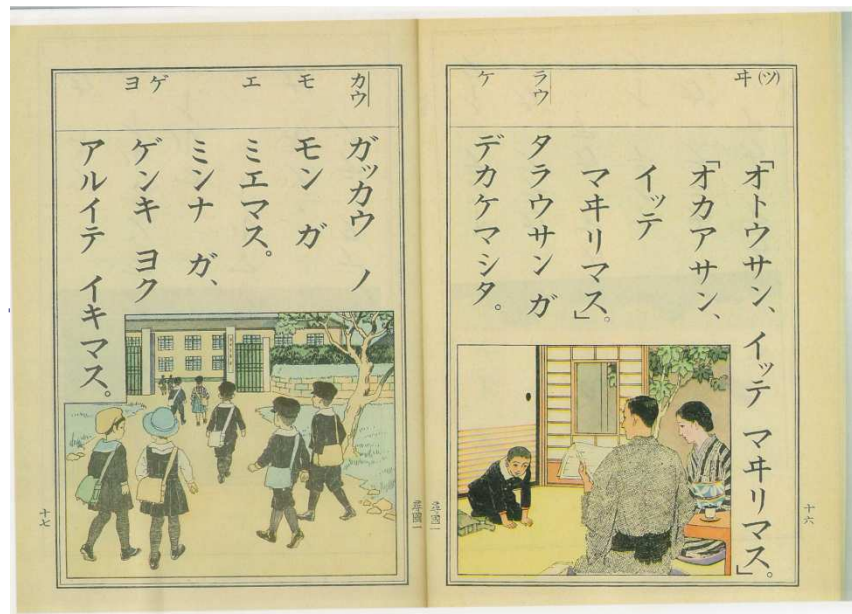 ヰ(ツ)
ラウ
ケ
「オトウサン、イッテ マヰリマス」。
「オカアサン、
イッテ
マヰリマス」。
タラウサン ガ
デカケマシタ。
十六
尋國一
カウ
モ
エ
ゲ
ヨ
ガッカウ ノ
モン ガ
ミエマス。
ミンナ ガ、
ゲンキ ヨク
アルイテ イキマス。
尋國一
十七